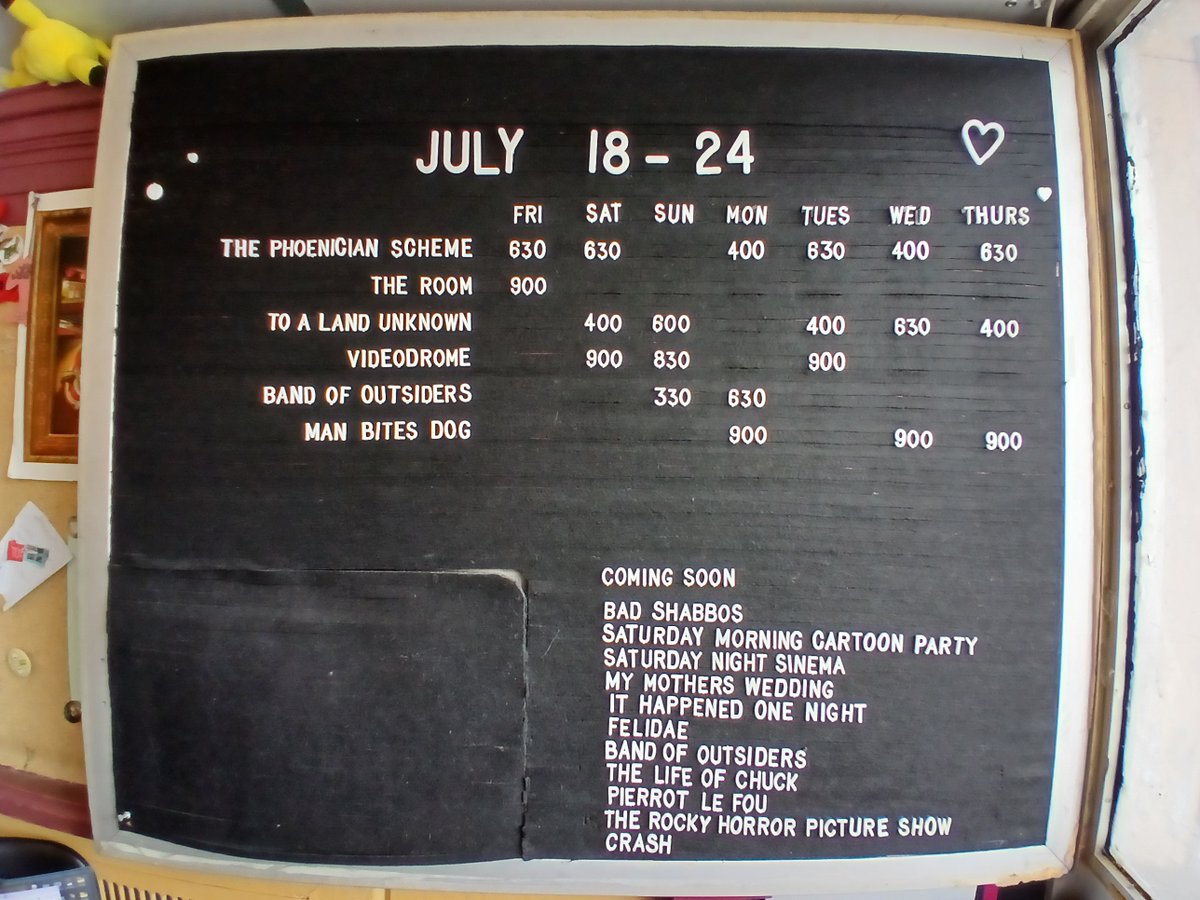 JULY 18 - 24
FRI SAT SUN MON TUES WED THURS
THE PHOENICIAN SCHEME 630 630 400 630 400 630
THE ROOM 900
TO A LAND UNKNOWN 400 600 400 630 400
VIDEODROME 900 830 900
BAND OF OUTSIDERS 330 630
MAN BITES DOG 900 900 900
COMING SOON
BAD SHABBOS
SATURDAY MORNING CARTOON PARTY
SATURDAY NIGHT SINEMA
MY MOTHERS WEDDING
IT HAPPENED ONE NIGHT
FELIDAE
BAND OF OUTSIDERS
THE LIFE OF CHUCK
PIERROT LE FOU
THE ROCKY HORROR PICTURE SHOW
CRASH